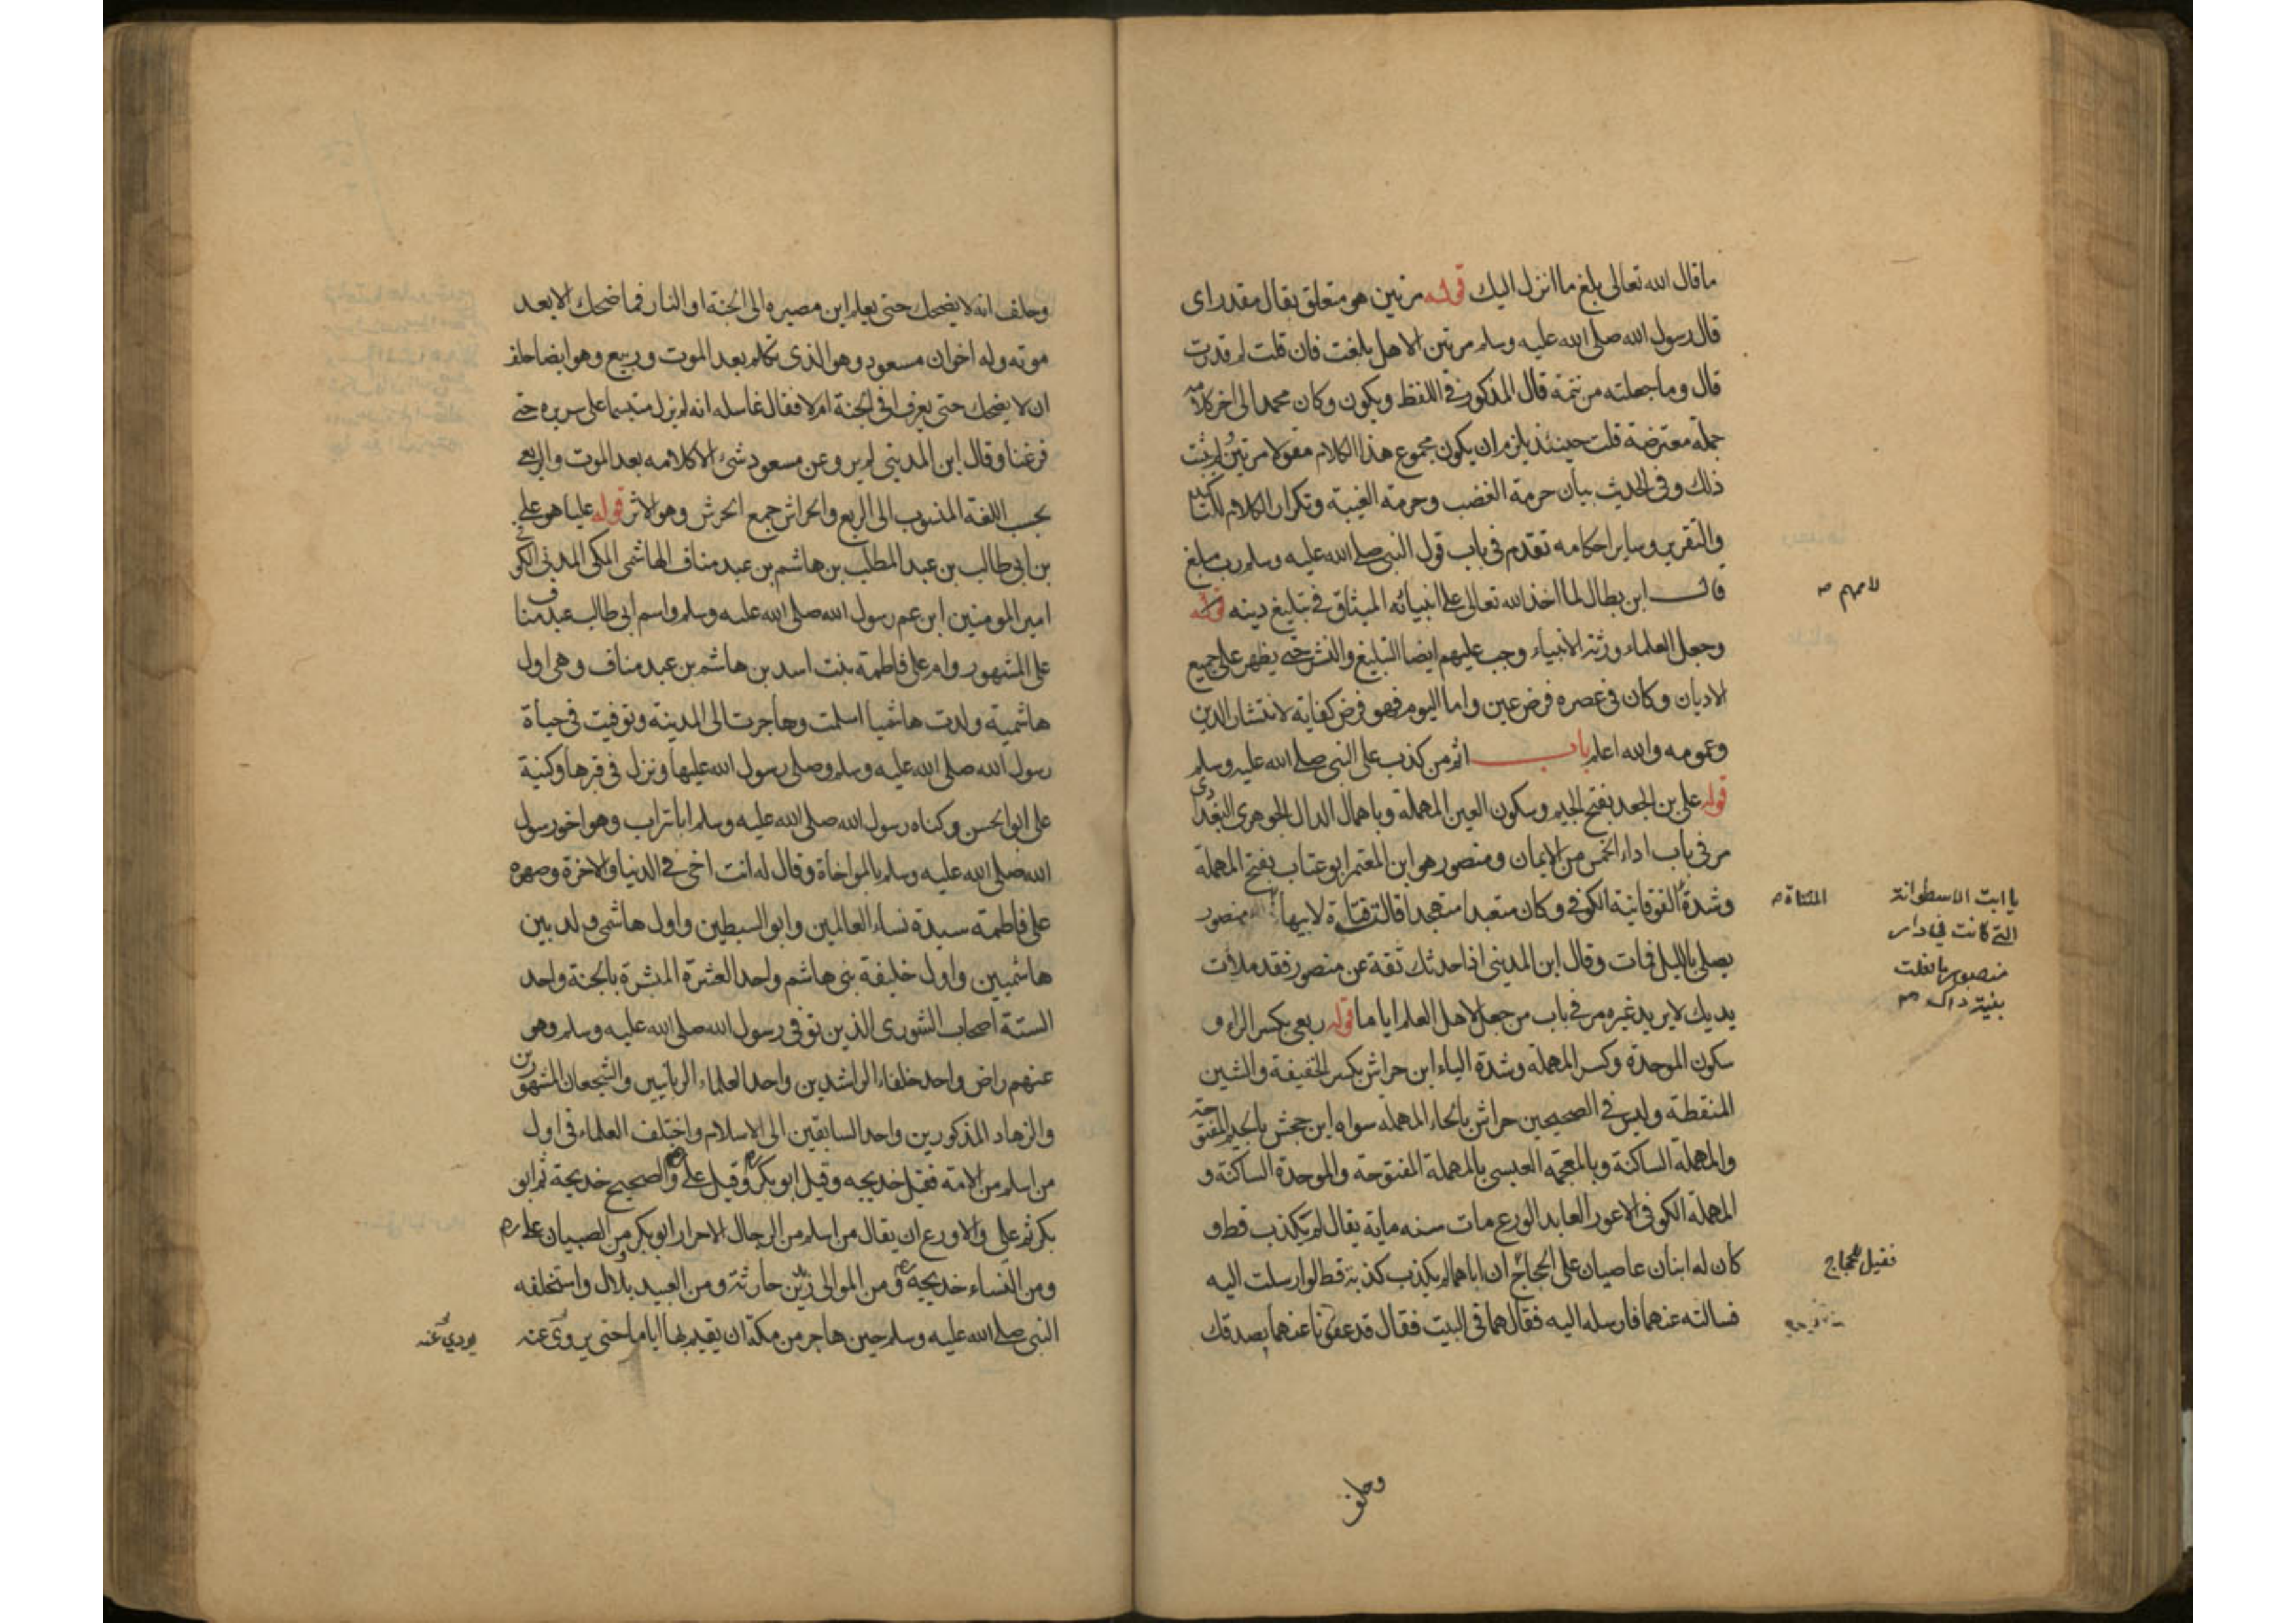 ما قال الله تعالى بلغ ما انزل اليك قوله مرتين هو متعلق بقال مقدر اى
قال رسول الله صلى الله عليه وسلم مرتين الا هل بلغت فان قلت لم قدرت
قال وما جعلته من تتمة قال المذكور فى اللفظ ويكون وكان محمد الى اخر كلامه
جملة معترضة قلت حينئذ يلزم ان يكون مجموع هذا الكلام مقولا مرتين ولم يثبت
ذلك وفى الحديث بيان حرمة الغضب وحرمة الغيبة وتكرار الكلام للتاكيد
والتقرير وساير احكامه تقدم فى باب قول النبى صلى الله عليه وسلم رب مبلغ
قال ابن بطال لما اخذ الله تعالى على انبيائه الميثاق فى تبليغ دينه قوله
لامهم صه
وجعل العلماء ورثة الانبياء وجب عليهم ايضا التبليغ والنشر حتى يظهر على جميع
الاديان وكان فى عصره فرض عين واما اليوم فهو فرض كفاية لانتشار الدين
وعمومه والله اعلم باب اثم من كذب على النبى صلى الله عليه وسلم
قوله على بن الجعد بفتح الجيم وسكون العين المهملة وباهمال الدال الجوهرى البغدادى
مر فى باب اداء الخمس من الايمان ومنصور هو ابن المعتمر ابو عتاب بفتح المهملة
وشدة الفوقانية الكوفى وكان متعبدا متهجدا قالت فتاة لابيها منصور
المثناة ص
يا ابت الاسطوانة
التى كانت فى دار
منصور ما فعلت
بنية ذاك ص
يصلى بالليل فمات وقال ابن المدينى اذا حدثك ثقة عن منصور فقد ملأت
يديك لا يريد غيره مر فى باب من جعل لاهل العلم اياما قوله ربعى بكسر الراء و
سكون الموحدة وكسر المهملة وشدة الياء ابن حراش بكسر الخفيفة والشين
المنقطة وليس فى الصحيحين حراش بالحاء المهملة سواه ابن جحش بالجيم المفتوحة
والمهملة الساكنة وبالمعجمة العبسى بالمهملة المفتوحة والموحدة الساكنة و
المهملة الكوفى الاعور العابد الورع مات سنه ماية يقال لم يكذب قط و
كان له ابنان عاصيان على الحجاج ان اباهما لم يكذب كذبة قط لو ارسلت اليه
فقيل للحجاج
فسالته عنهما فارسله اليه فقال هما فى البيت فقال قد عفونا عنهما بصدقك
وحلف
وحلف انه لا يضحك حتى يعلم اين مصيره الى الجنة او النار فما ضحك الا بعد
موته وله اخوان مسعود وهو الذى تكلم بعد الموت وربيع وهو ايضا حلف
ان لا يضحك حتى يعرف افى الجنة ام لا فقال غاسله انه لم يزل متبسما على سريره حتى
فرغنا وقال ابن المدينى لم يرو عن مسعود شئ الا كلامه بعد الموت والربعى
بحسب اللغة المنسوب الى الربع والحراش جمع الحرش وهو الاثر قوله عليا هو على
بن ابى طالب بن عبد المطلب بن هاشم بن عبد مناف الهاشمى المكى المدنى الكوفى
امير المومنين ابن عم رسول الله صلى الله عليه وسلم واسم ابى طالب عبد مناف
على المشهور وام على فاطمة بنت اسد بن هاشم بن عبد مناف وهى اول
هاشمية ولدت هاشميا اسلمت وهاجرت الى المدينة وتوفيت فى حياة
رسول الله صلى الله عليه وسلم وصلى رسول الله عليها ونزل فى قبرها وكنية
على ابو الحسن وكناه رسول الله صلى الله عليه وسلم ابا تراب وهو اخو رسول
الله صلى الله عليه وسلم بالمواخاة وقال له انت اخى فى الدنيا والاخرة وصهره
على فاطمة سيدة نساء العالمين وابو السبطين واول هاشمى ولد بين
هاشميين واول خليفة بنى هاشم واحد العشرة المبشرة بالجنة واحد
الستة اصحاب الشورى الذين توفى رسول الله صلى الله عليه وسلم وهو
عنهم راض واحد خلفاء الراشدين واحد العلماء الربانيين والشجعان المشهورين
والزهاد المذكورين واحد السابقين الى الاسلام واختلف العلماء فى اول
من اسلم من الامة فقيل خديجه وقيل ابو بكر وقيل على والصحيح خديجة ثم ابو
بكر ثم على والاورع ان يقال من اسلم من الرجال الاحرار ابو بكر ومن الصبيان على
ومن النساء خديجه ومن الموالى زيد بن حارثة ومن العبيد بلال واستخلفه
النبى صلى الله عليه وسلم حين هاجر من مكة ان يقيم بها اياما حتى يروى عنه
يودى عنه